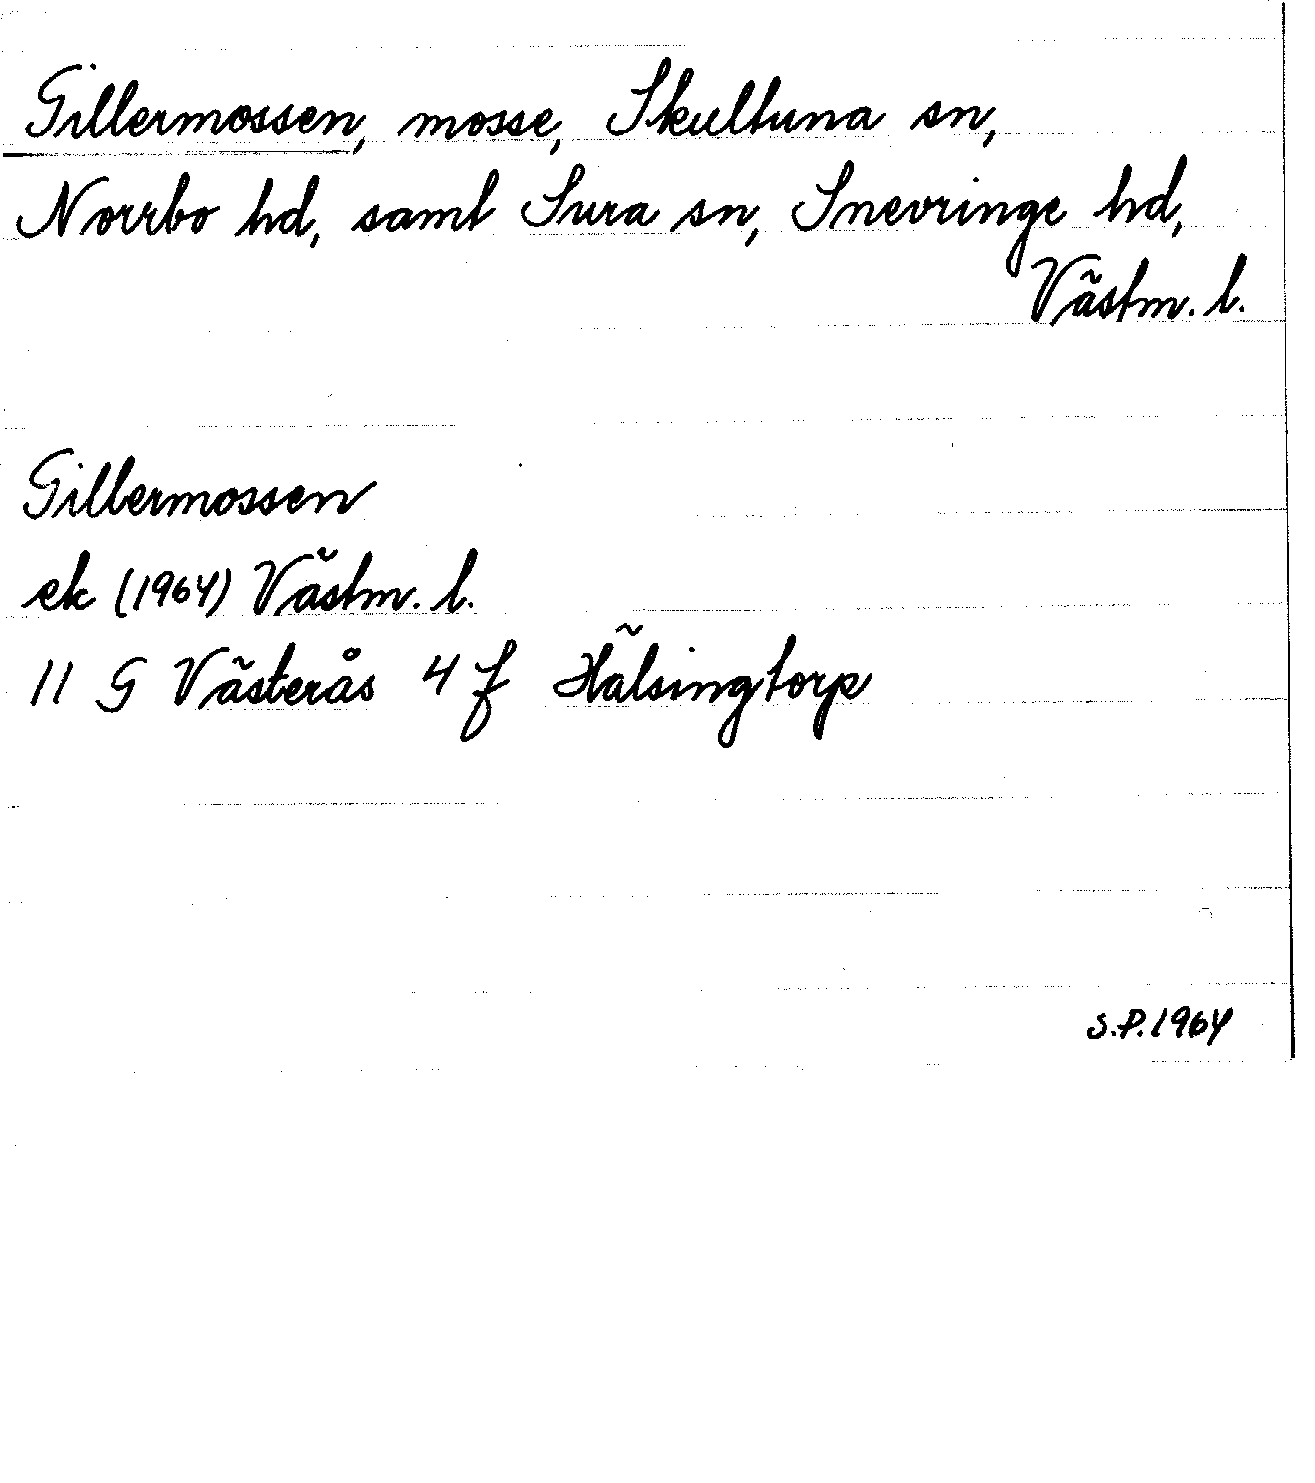 Gillermossen, mosse, Skultuna sn,
Norrbo hd, samt Sura sn, Snevringe hd,
Västm. l.
Gillermossen
ek (1964) Västm. l.
11 G Västerås 4 f Hälsingtorp
S.P. 1964